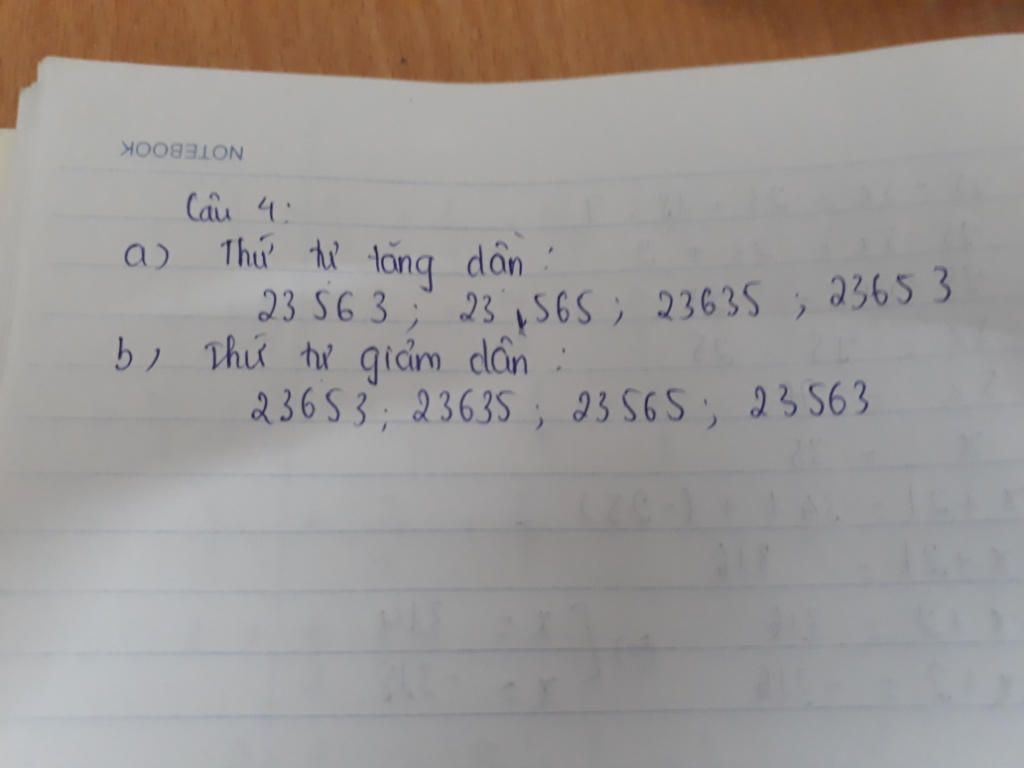 NOTEBOOK
Câu 4:
a) Thứ tự tăng dần:
23 563; 23 565; 23635; 23653
b) Thứ tự giảm dần:
23653; 23635; 23565; 23563